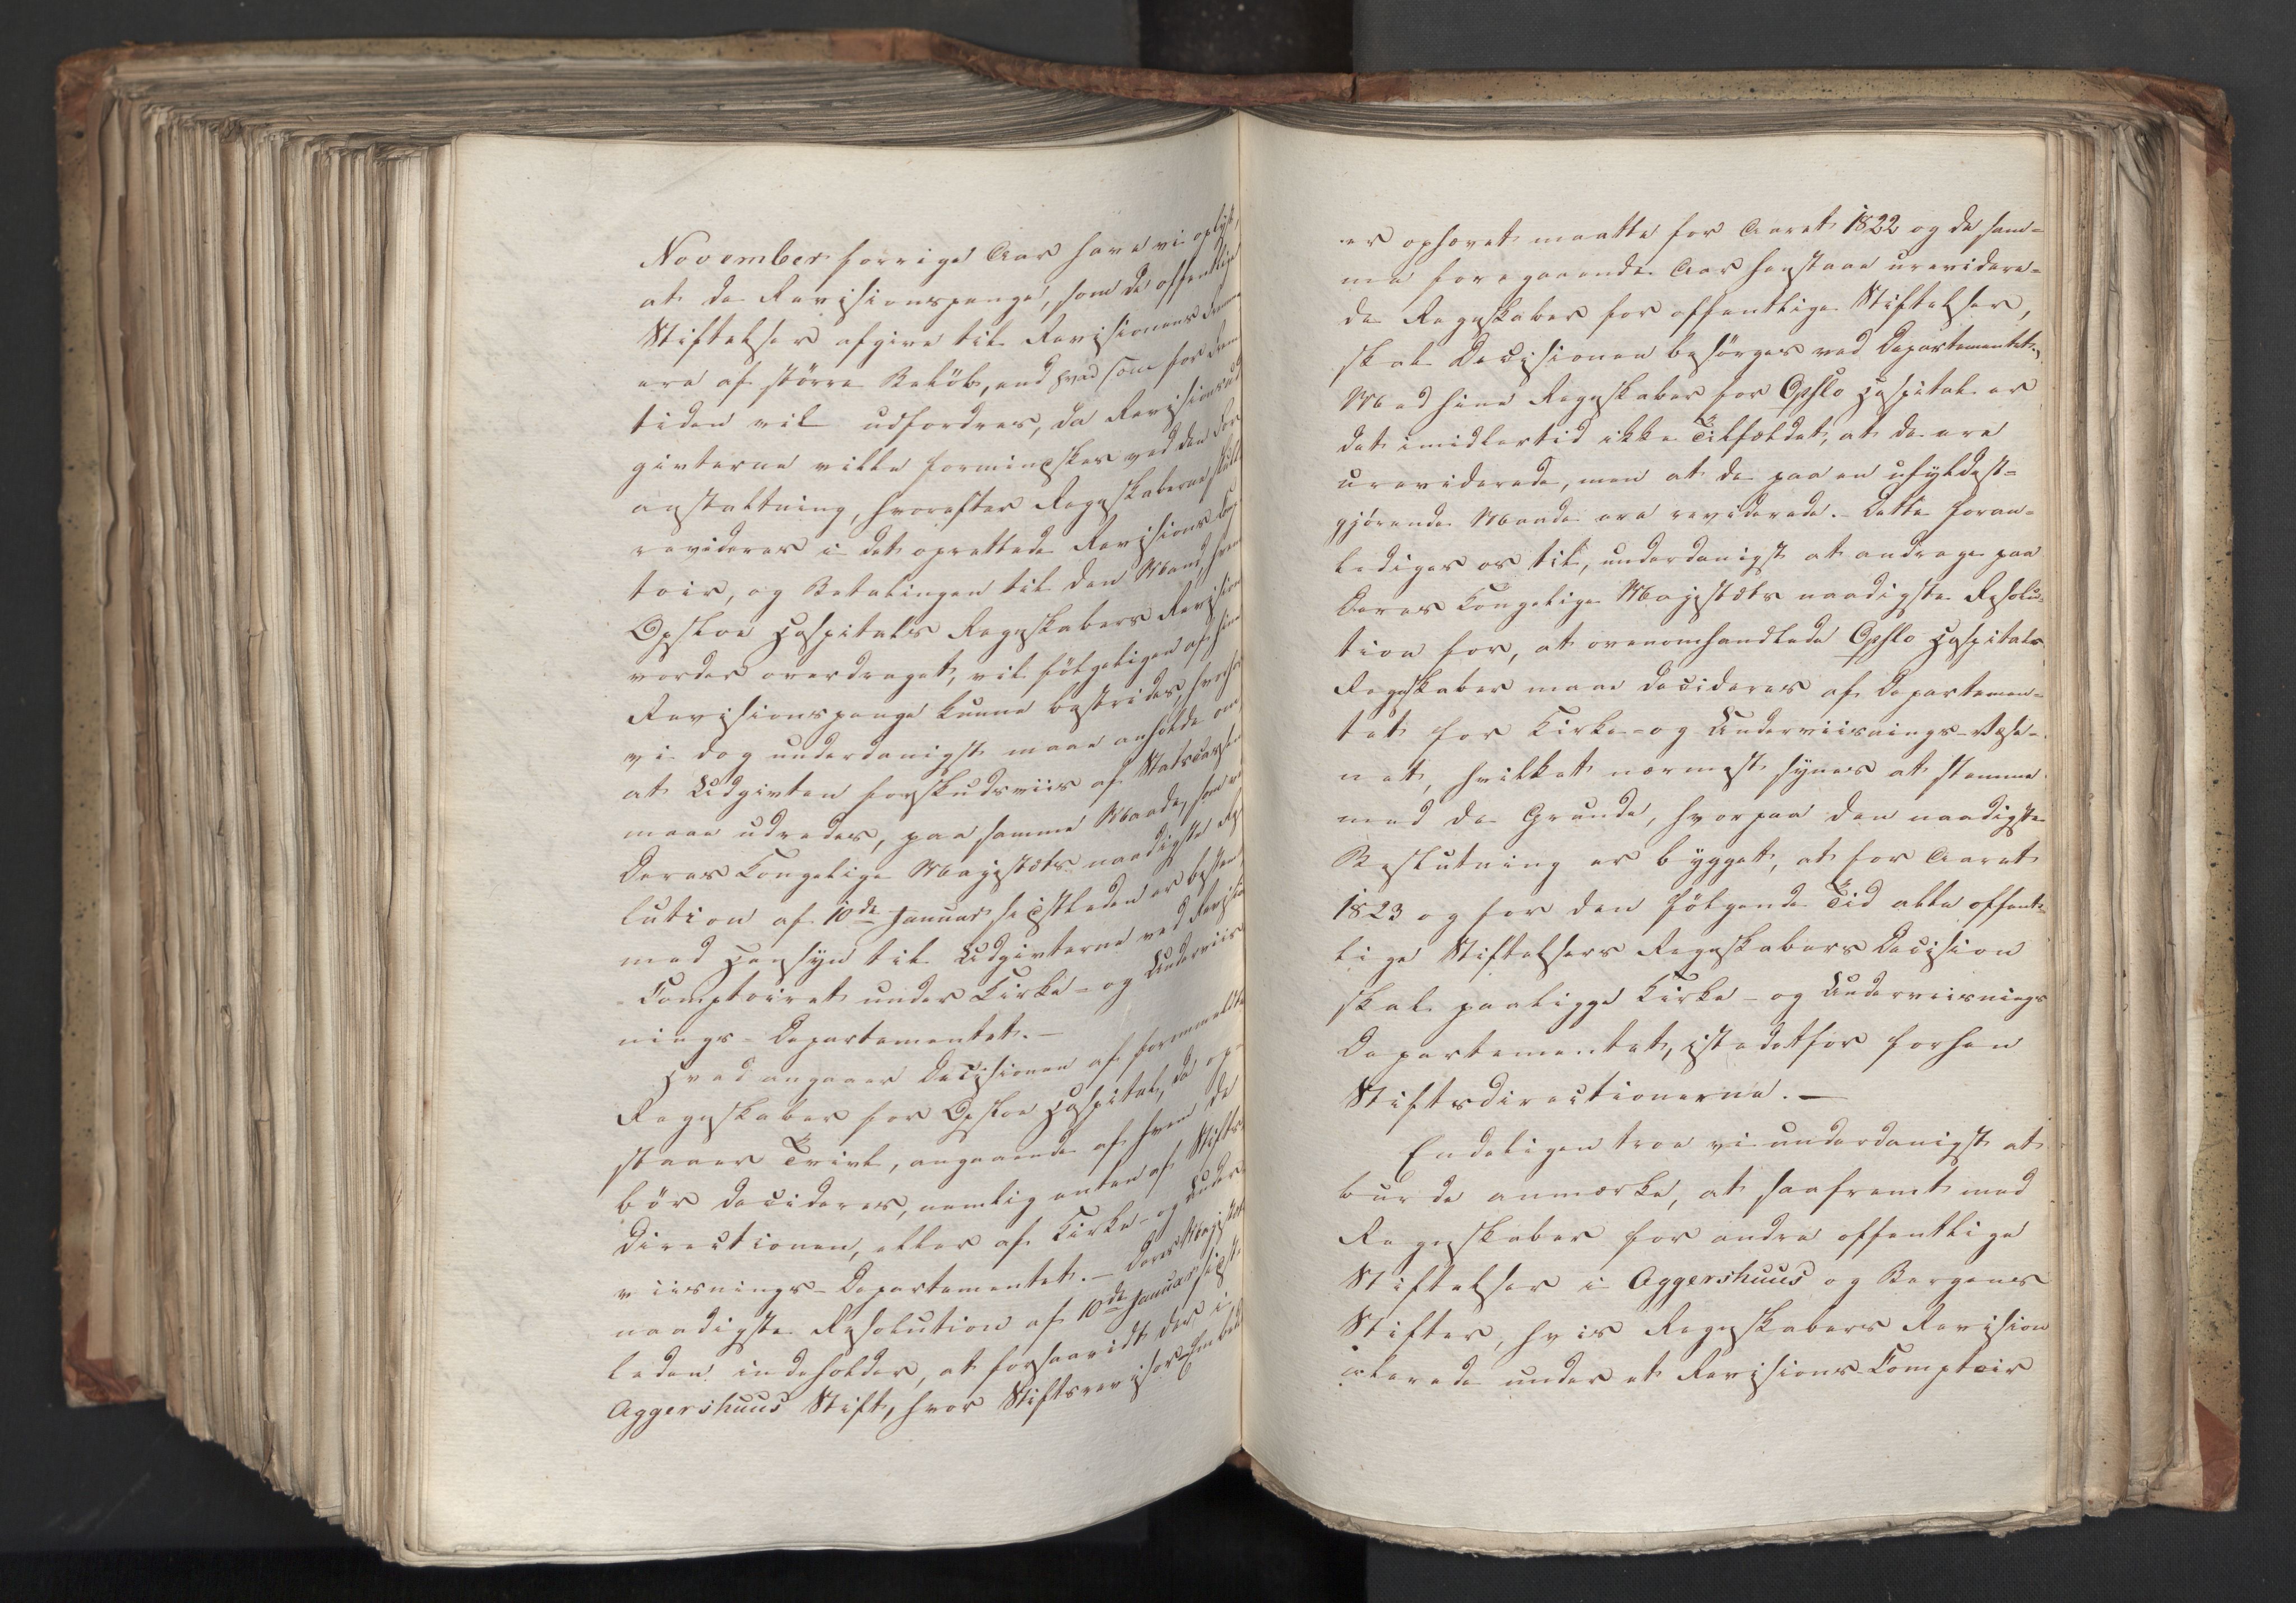 November forrige Aar have vi oplyst,
at de Revisionspenge, som de offentlige
Stiftelser afgive til Revisionens
ere af større Beløb, end hvad som for
tiden vil udfordres, da Revisionsud-
givterne ville formindskes ved den For-
anstaltning, hvorefter Regnskaberne skulle
revideres i det oprettede Revisions Comp-
toir, og Betalingen til den Mand, hvem
Opsloe Hospitals Regnskabers Revision
vorder overdraget, vil følgeligen af hine
Revisionspenge kunne bestrides, hvorhos
vi dog underdanigst maae anholde om
at Udgivten forskudsviis af Statscassen
maae udredes, paa samme Maade, som ved
Deres Kongelige Majestæts naadigste Reso-
lution af 10de Januar sidstleden er bestemt
med Hensyn til Udgivterne ved Revisions-
Comptoiret under Kirke- og Underviis-
nings-Departementet. —
Hvad angaaer Decisionen af formeldte
Regnskaber for Opsloe Hospital, da op-
staaer Tvivl, angaaende af hvem de
bör decideres, nemlig enten af Stifts-
directionen, eller af Kirke- og Under-
viisnings-Departementet. — Deres Majestæts
naadigste Resolution af 10de Januar sidst-
leden indeholder, at forsaavidt der i
Aggershuus Stift, hvor Stiftsrevisor-Embedet
er ophævet maatte for Aaret 1822 og de sam-
me foregaaende Aar henstaae urevidere-
de Regnskaber for offentlige Stiftelser,
skal Decisionen besörges ved Departementet.
Med hine Regnskaber for Opslo Hospital er
det imidlertid ikke Tilfældet, at de ere
ureviderede, men at de paa en ufyldest-
gjörende Maade ere reviderede. — Dette foran-
lediger os til, underdanigst at andrage paa
Deres Kongelige Majestæts naadigste Resolu-
tion for, at ovenomhandlede Opslo Hospitals
Regnskaber maae decideres af Departemen-
tet for Kirke- og Underviisnings-Væse-
net, hvilket nærmest synes at stemme
med de Grunde, hvorpaa den naadigste
Beslutning er bygget, at for Aaret
1823 og for den fölgende Tid alle offent-
lige Stiftelsers Regnskabers Decision
skal paaligge Kirke- og Underviisnings
Departementet, istedetfor forhen
Stiftsdirectionerne. —
Endeligen troe vi underdanigst at
burde anmærke, at saafremt med
Regnskaber for andre offentlige
Stiftelser i Aggershuus og Bergens
Stifter, hvis Regnskabers Revision
allerede under et Revisions-Comptoir